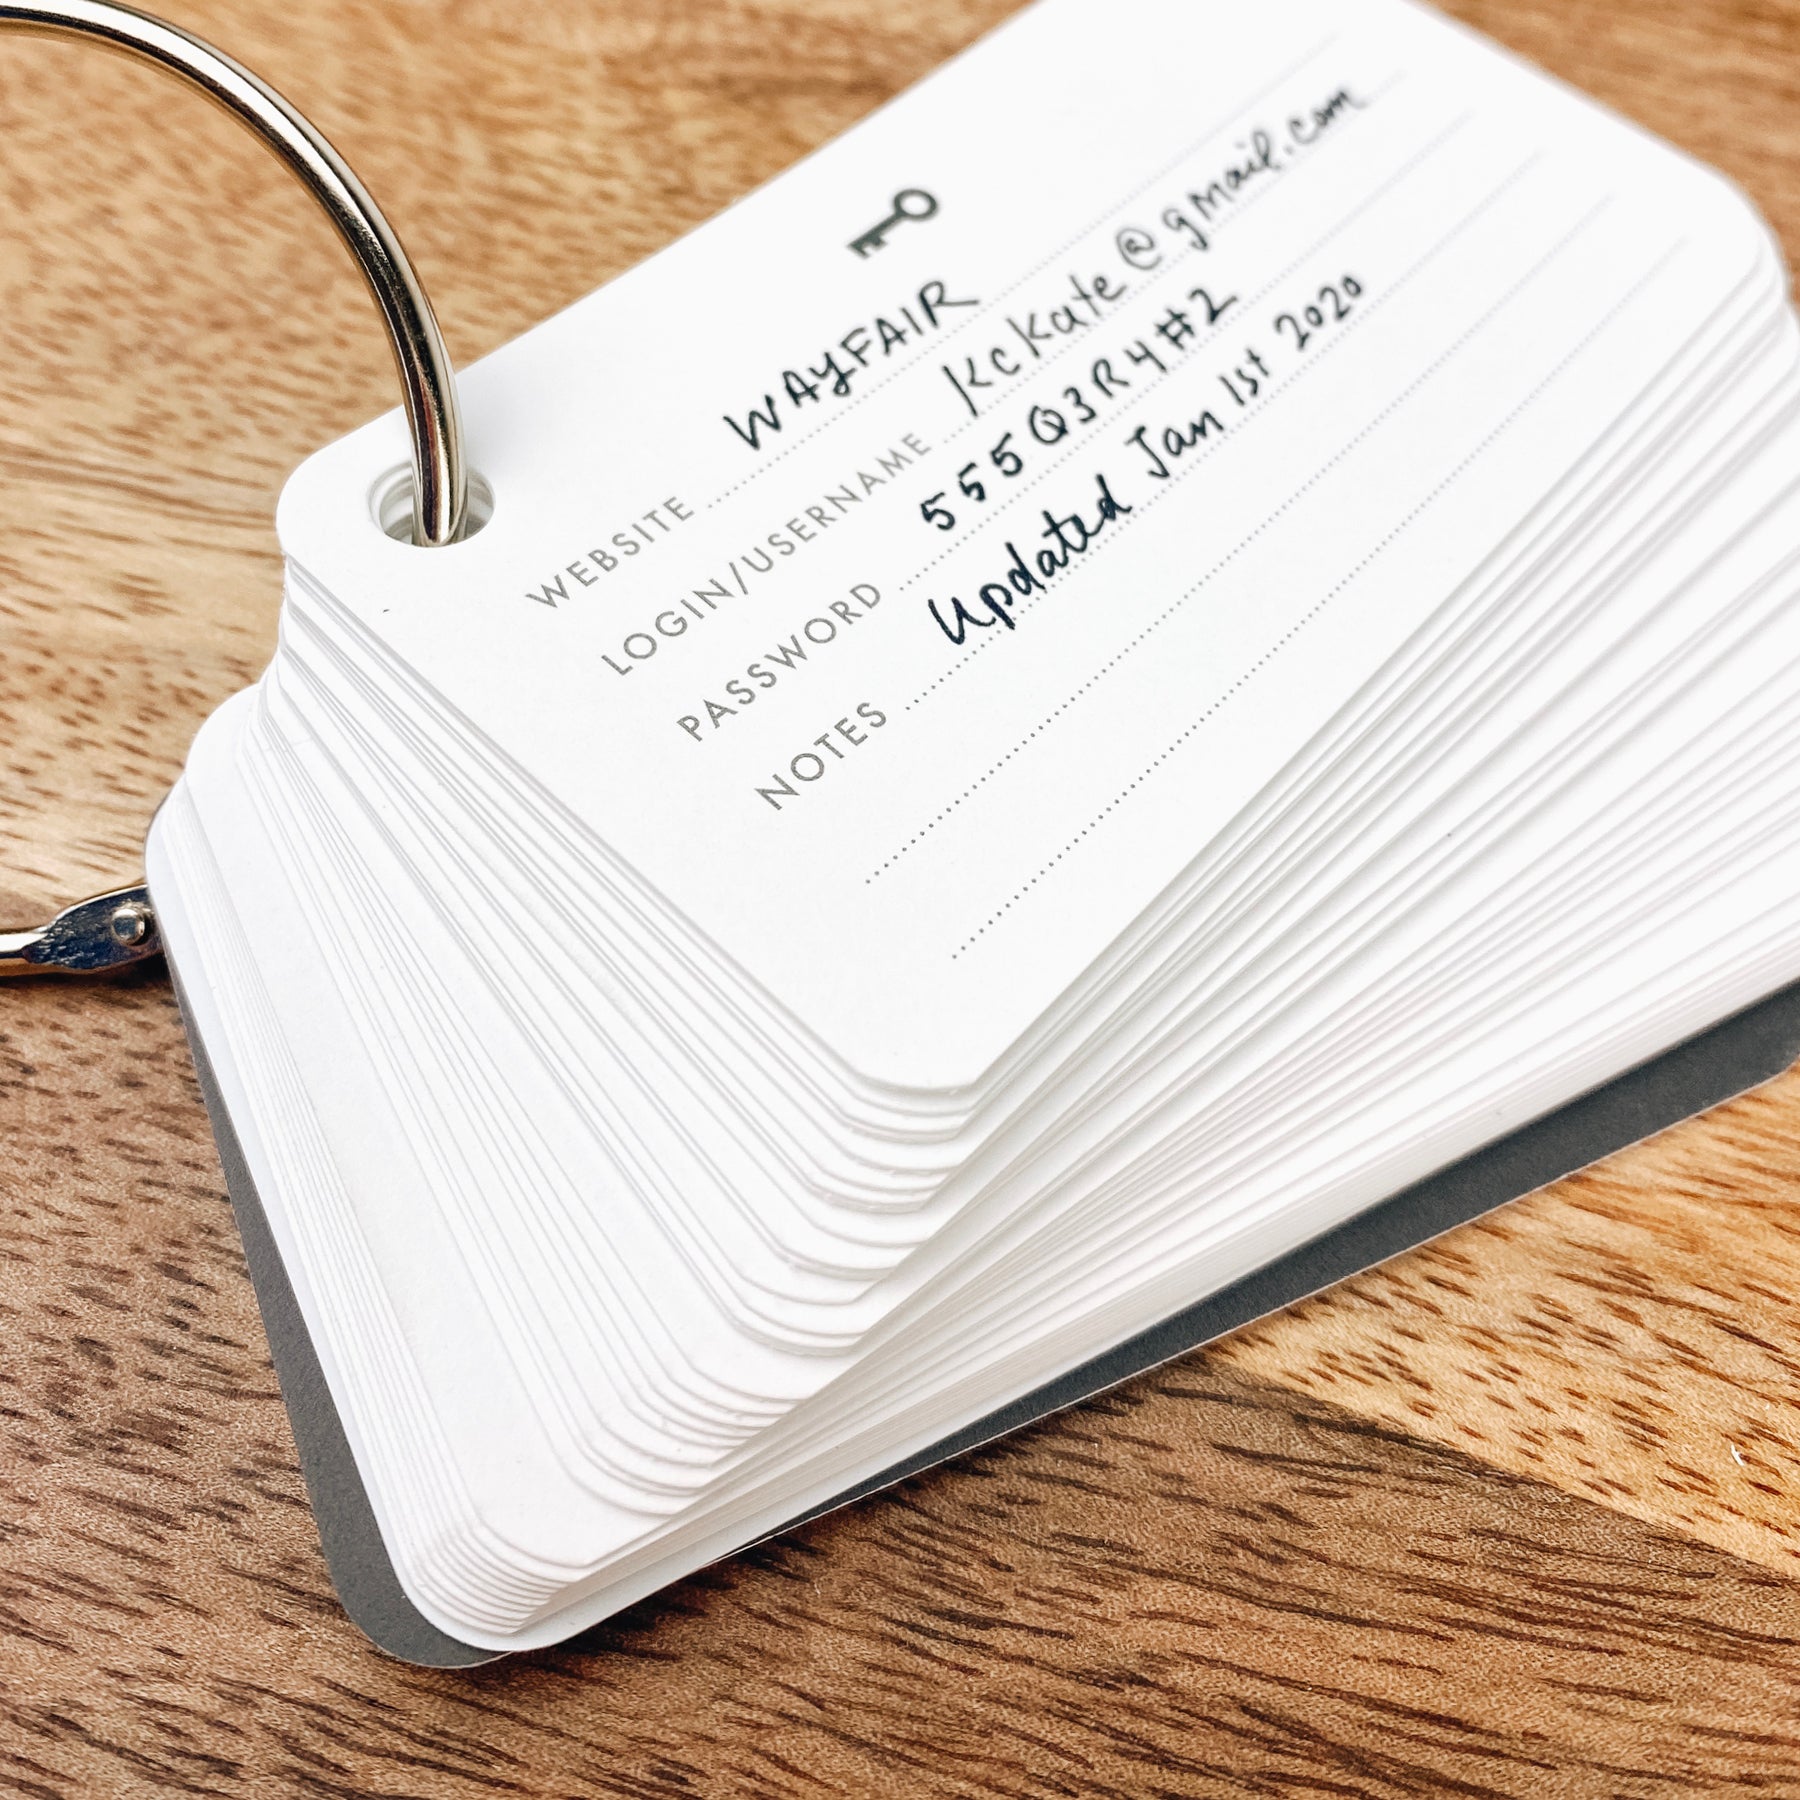 WEBSITE WAYFAIR
LOGIN/USERNAME KcKate@gmail.com
PASSWORD 555Q3R4#2
NOTES Updated Jan 1st 2020